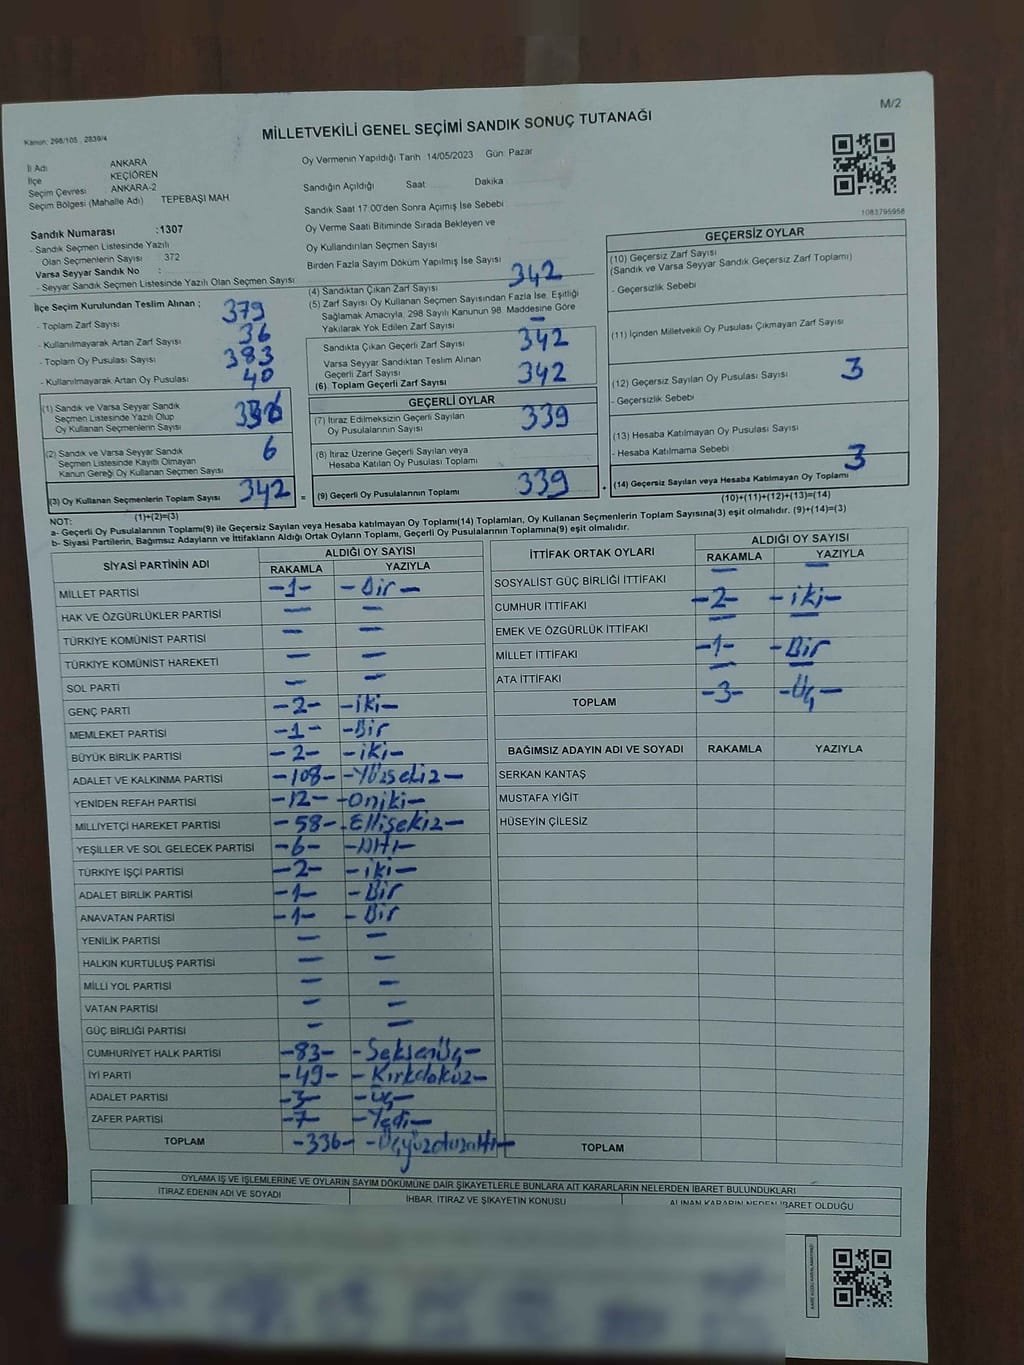 M/2
Kanun: 298/105 , 2839/4
MİLLETVEKİLİ GENEL SEÇİMİ SANDIK SONUÇ TUTANAĞI
İl Adı ANKARA
İlçe KEÇİÖREN
Seçim Çevresi : ANKARA-2
Seçim Bölgesi (Mahalle Adı) TEPEBAŞI MAH
Oy Vermenin Yapıldığı Tarih 14/05/2023 Gün: Pazar
Sandığın Açıldığı Saat Dakika
Sandık Saat 17:00'den Sonra Açımış İse Sebebi
Oy Verme Saati Bitiminde Sırada Bekleyen ve
Oy Kullandırılan Seçmen Sayısı
Birden Fazla Sayım Döküm Yapılmış İse Sayısı
1083795958
Sandık Numarası :1307
- Sandık Seçmen Listesinde Yazılı
Olan Seçmenlerin Sayısı : 372
Varsa Seyyar Sandık No :
- Seyyar Sandık Seçmen Listesinde Yazılı Olan Seçmen Sayısı
İlçe Seçim Kurulundan Teslim Alınan ;
- Toplam Zarf Sayısı 379
- Kullanılmayarak Artan Zarf Sayısı 36
- Toplam Oy Pusulası Sayısı 383
- Kullanılmayarak Artan Oy Pusulası 40
(1) Sandık ve Varsa Seyyar Sandık
Seçmen Listesinde Yazılı Olup
Oy Kullanan Seçmenlerin Sayısı
(2) Sandık ve Varsa Seyyar Sandık
Seçmen Listesinde Kayıtlı Olmayan
Kanun Gereği Oy Kullanan Seçmen Sayısı 6
(3) Oy Kullanan Seçmenlerin Toplam Sayısı 342
(1)+(2)=(3)
(4) Sandıktan Çıkan Zarf Sayısı 342
(5) Zarf Sayısı Oy Kullanan Seçmen Sayısından Fazla İse, Eşitliği
Sağlamak Amacıyla, 298 Sayılı Kanunun 98. Maddesine Göre
Yakılarak Yok Edilen Zarf Sayısı –
Sandıkta Çıkan Geçerli Zarf Sayısı 342
Varsa Seyyar Sandıktan Teslim Alınan
Geçerli Zarf Sayısı
(6) Toplam Geçerli Zarf Sayısı 342
GEÇERLİ OYLAR
(7) İtiraz Edilmeksizin Geçerli Sayılan
Oy Pusulalarının Sayısı 339
(8) İtiraz Üzerine Geçerli Sayılan veya
Hesaba Katılan Oy Pusulası Toplamı
= (9) Geçerli Oy Pusulalarının Toplamı 339 +
GEÇERSİZ OYLAR
(10) Geçersiz Zarf Sayısı
(Sandık ve Varsa Seyyar Sandık Geçersiz Zarf Toplamı)
- Geçersizlik Sebebi
(11) İçinden Milletvekili Oy Pusulası Çıkmayan Zarf Sayısı
(12) Geçersiz Sayılan Oy Pusulası Sayısı 3
- Geçersizlik Sebebi
(13) Hesaba Katılmayan Oy Pusulası Sayısı
- Hesaba Katılmama Sebebi
(14) Geçersiz Sayılan veya Hesaba Katılmayan Oy Toplamı 3
(10)+(11)+(12)+(13)=(14)
NOT:
a- Geçerli Oy Pusulalarının Toplamı(9) ile Geçersiz Sayılan veya Hesaba katılmayan Oy Toplamı(14) Toplamları, Oy Kullanan Seçmenlerin Toplam Sayısına(3) eşit olmalıdır. (9)+(14)=(3)
b- Siyasi Partilerin, Bağımsız Adayların ve İttifakların Aldığı Ortak Oyların Toplamı, Geçerli Oy Pusulalarının Toplamına(9) eşit olmalıdır.
SİYASİ PARTİNİN ADI ALDIĞI OY SAYISI
RAKAMLA YAZIYLA
MİLLET PARTİSİ -1- -Bir-
HAK VE ÖZGÜRLÜKLER PARTİSİ – –
TÜRKİYE KOMÜNİST PARTİSİ – –
TÜRKİYE KOMÜNİST HAREKETİ – –
SOL PARTİ – –
GENÇ PARTİ -2- -iki-
MEMLEKET PARTİSİ -1- -Bir
BÜYÜK BİRLİK PARTİSİ -2- -iki-
ADALET VE KALKINMA PARTİSİ -108- -Yüzsekiz-
YENİDEN REFAH PARTİSİ -12- -Oniki-
MİLLİYETÇİ HAREKET PARTİSİ -58- -Ellisekiz-
YEŞİLLER VE SOL GELECEK PARTİSİ -6- -Altı-
TÜRKİYE İŞÇİ PARTİSİ -2- -iki-
ADALET BİRLİK PARTİSİ -1- -Bir
ANAVATAN PARTİSİ -1- -Bir
YENİLİK PARTİSİ – –
HALKIN KURTULUŞ PARTİSİ – –
MİLLİ YOL PARTİSİ – –
VATAN PARTİSİ – –
GÜÇ BİRLİĞİ PARTİSİ – –
CUMHURİYET HALK PARTİSİ -83- -Seksenüç-
İYİ PARTİ -49- -Kırkdokuz-
ADALET PARTİSİ -3- -üç-
ZAFER PARTİSİ -7- -Yedi-
TOPLAM -336- -Üçyüzotuzaltı-
İTTİFAK ORTAK OYLARI ALDIĞI OY SAYISI
RAKAMLA YAZIYLA
SOSYALİST GÜÇ BİRLİĞİ İTTİFAKI – –
CUMHUR İTTİFAKI -2- -iki-
EMEK VE ÖZGÜRLÜK İTTİFAKI – –
MİLLET İTTİFAKI -1- -Bir
ATA İTTİFAKI – –
TOPLAM -3- -Üç-
BAĞIMSIZ ADAYIN ADI VE SOYADI RAKAMLA YAZIYLA
SERKAN KANTAŞ
MUSTAFA YİĞİT
HÜSEYİN ÇİLESİZ
TOPLAM
OYLAMA İŞ VE İŞLEMLERİNE VE OYLARIN SAYIM DÖKÜMÜNE DAİR ŞİKAYETLERLE BUNLARA AİT KARARLARIN NELERDEN İBARET BULUNDUKLARI
İTİRAZ EDENİN ADI VE SOYADI İHBAR, İTİRAZ VE ŞİKAYETİN KONUSU ALINAN KARARIN NEDEN İBARET OLDUĞU